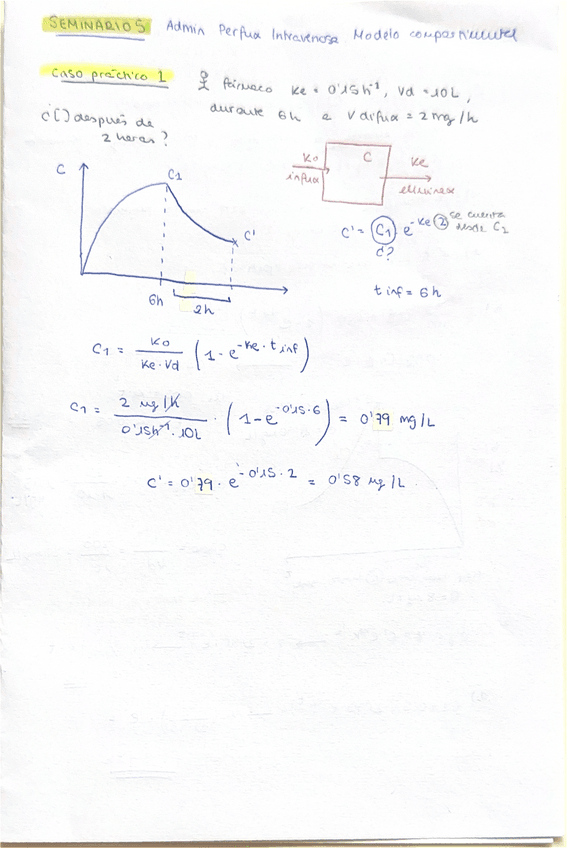 SEMINARIO 5 Admin Perfux Intravenosa Modelo compartimental
Caso práctico 1 fármaco Ke = 0'15h⁻¹, Vd = 10L,
durante 6h a V difux = 2 mg/h
¿[] después de
2 horas?
C
C1
C'
6h
2h
Ko
infux
C
Ke
eliminac
C' = C1 · e^-Ke·2 se cuenta
desde C2
¿?
t inf = 6h
C1 = Ko / Ke · Vd (1 - e^-Ke · t inf)
C1 = 2 mg/h / 0'15h⁻¹ · 10L · (1 - e^-0'15·6) = 0'79 mg/L
C' = 0'79 · e^-0'15 · 2 = 0'58 mg/L